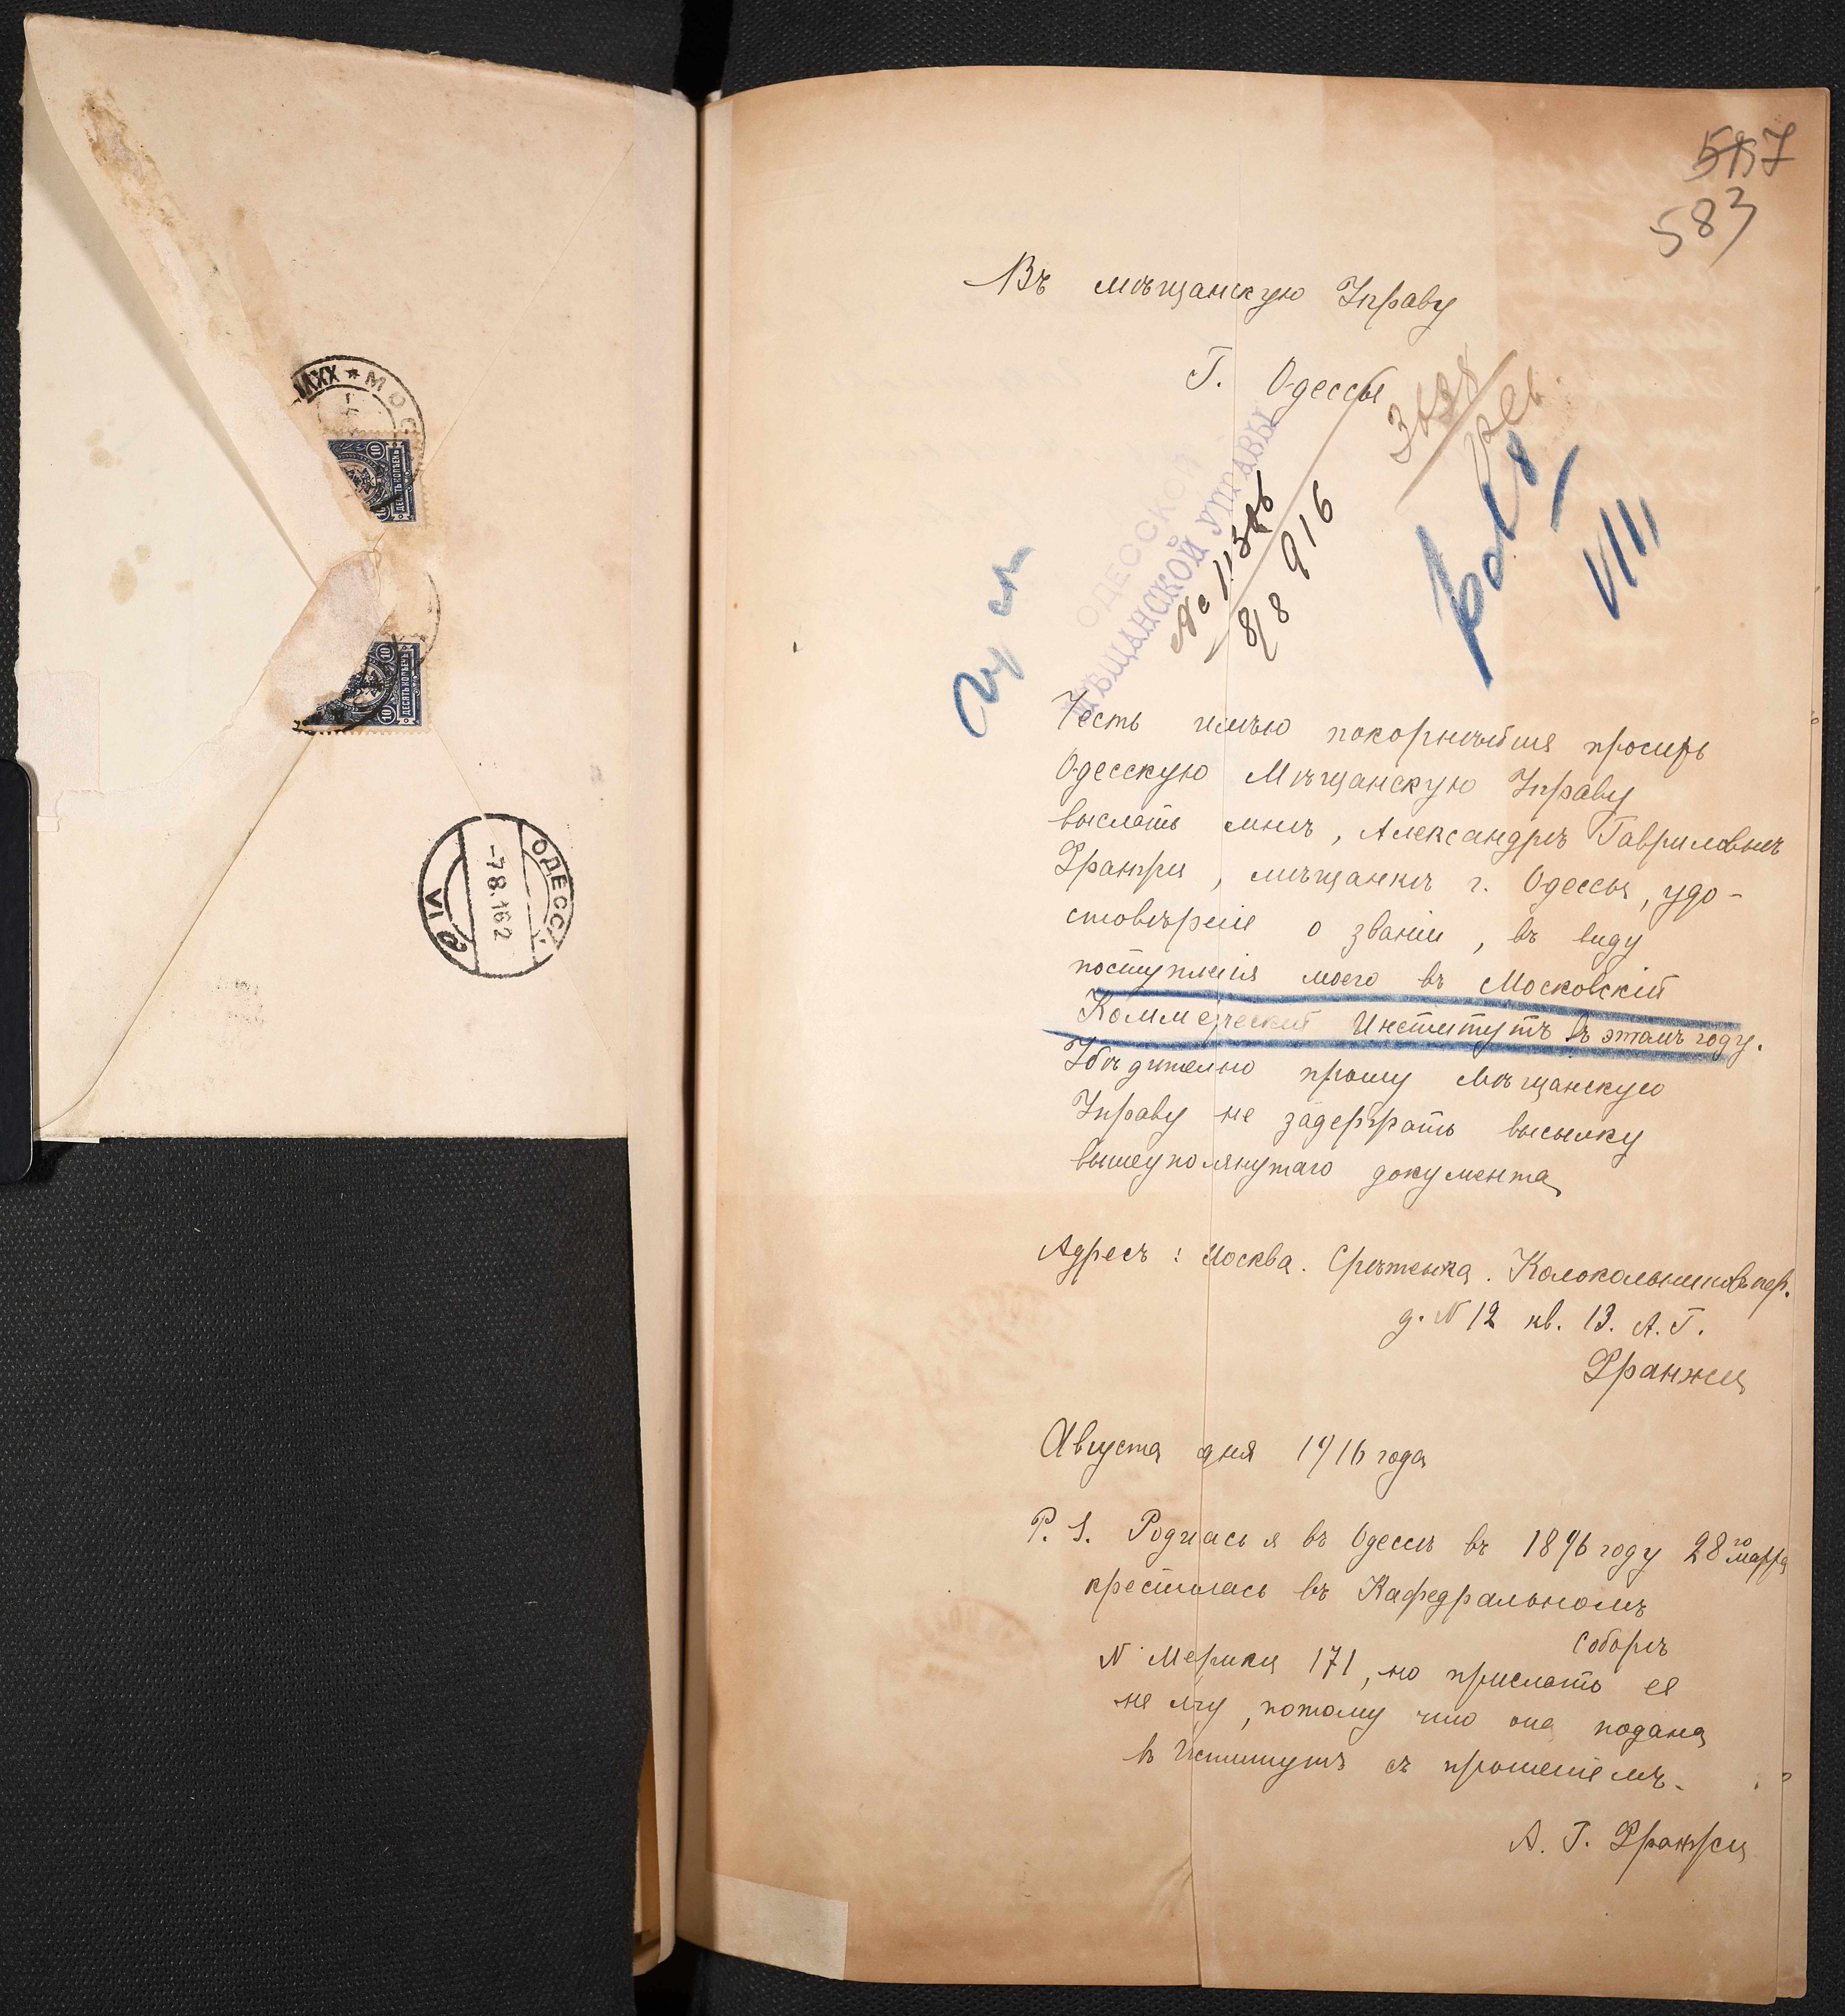 XXVI * МОС
10 ДЕСЯТЬ КОПѢЕКЪ 10
10 ДЕСЯТЬ КОПѢЕКЪ 10
ОДЕССА
-7 8.16 2
VI
583
Въ мѣщанскую Управу
Г. Одессы
ОДЕССКОЙ
МѢЩАНСКОЙ УПРАВЫ
8/8 916
VIII
Честь имѣю покорнѣйше просить
Одесскую Мѣщанскую Управу
выслать мнѣ, Александрѣ Гавриловнѣ
Франжи, мѣщанкѣ г. Одессы, удо-
стовѣреніе о званіи, въ виду
поступленія моего въ Московскій
Коммерческій Институтъ въ этомъ году.
Убѣдительно прошу мѣщанскую
Управу не задержать высылку
вышеупомянутаго документа
Адресъ: Москва. Срѣтенка. Колокольниковъ пер.
д. N 12 кв. 13. А. Г.
Франжи
Августа дня 1916 года
P. S. Родилась я въ Одессѣ въ 1896 году 28го марта
крестилась въ Кафедральномъ
Соборѣ
N Метрики 171, но прислать ее
не могу, потому что она подана
въ Институтъ съ прошеніемъ.
А. Г. Франжи